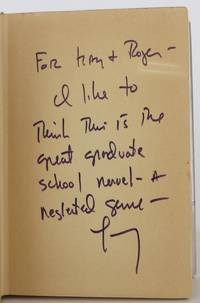 For Kay & Roger –
I like to
think this is the
great graduate
school novel – A
neglected genre –